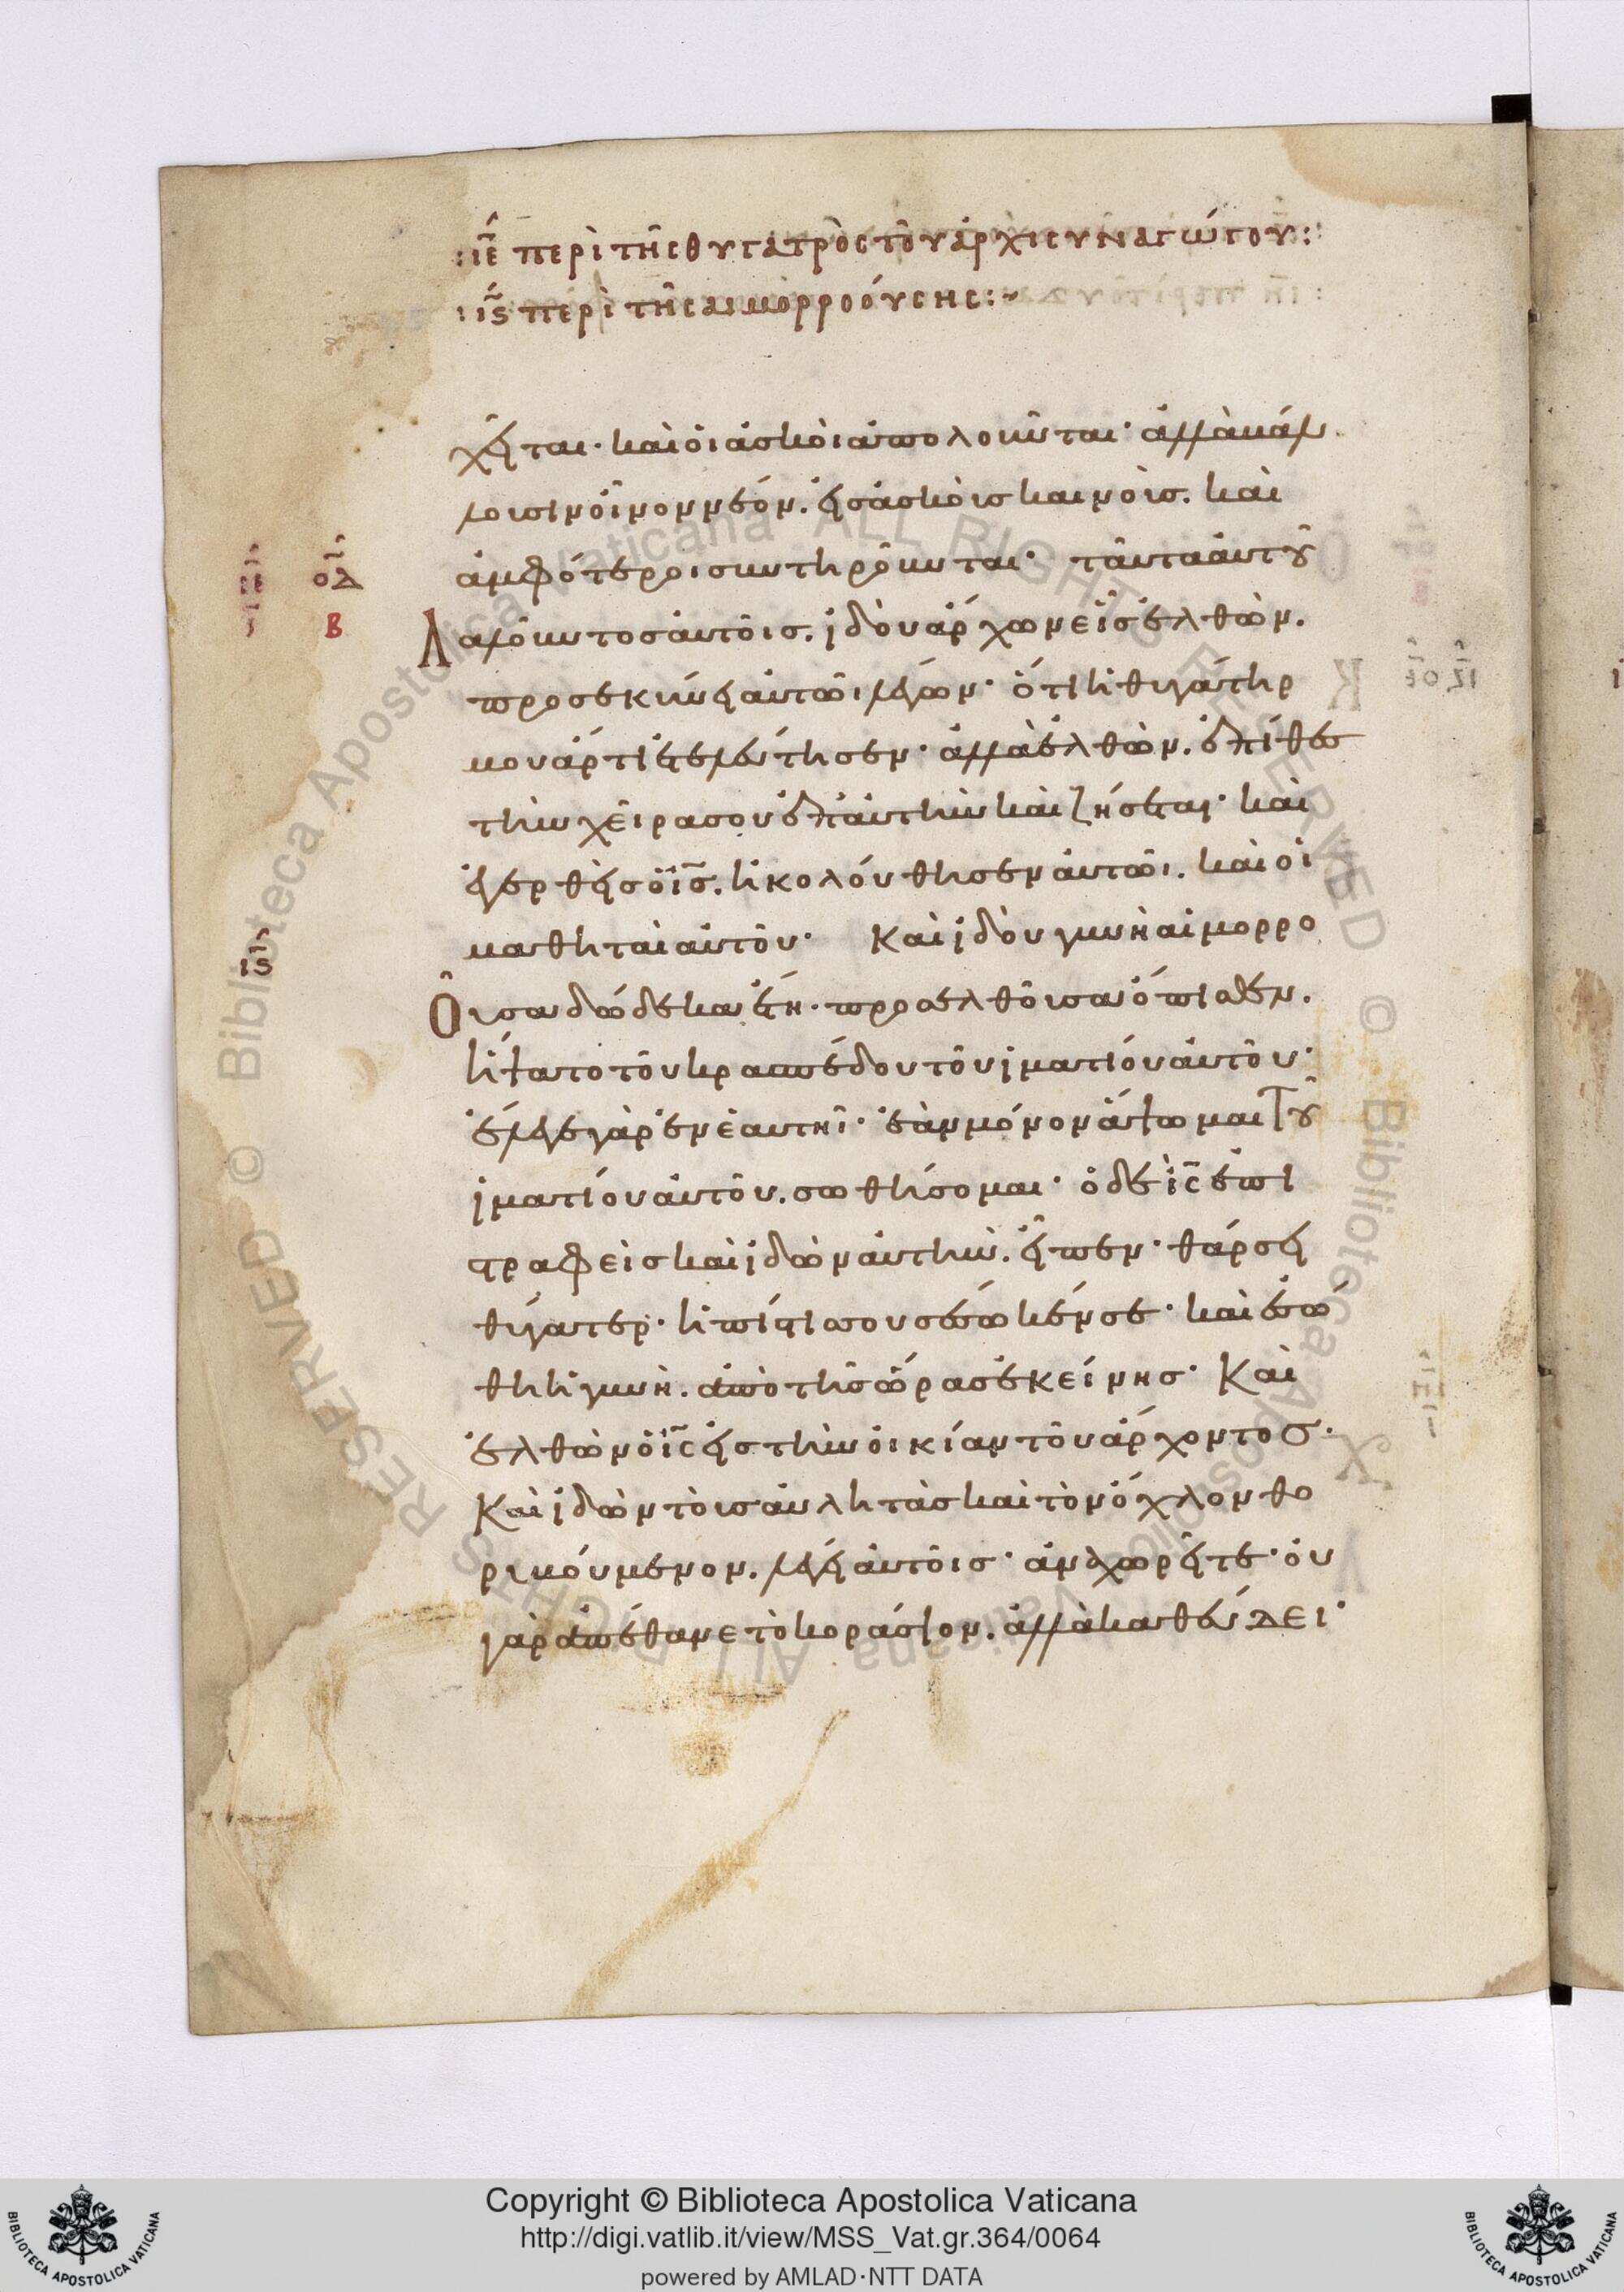 :ιε περὶ τῆς θυγατρὸς τοῦ ἀρχισυναγώγου:
:ις περὶ τῆς αἱμορροούσης:~
χεῖται· καὶ οἱ ἀσκοὶ ἀπολοῦνται· ἀλλὰ βάλ
λουσιν οἶνον νέον. εἰς ἀσκοὺς καινούς. καὶ
ἀμφότεροι συντηροῦνται· ταῦτα αὐτοῦ
ιε οδ
β
Λαλοῦντος αὐτοῖς. ἰδοὺ ἄρχων εἷς ἐλθὼν.
προσεκύνει αὐτῶι λέγων· ὅτι ἡ θυγάτηρ
μου ἄρτι ἐτελεύτησεν· ἀλλὰ ἐλθὼν. ἐπίθες
τὴν χεῖρα σου ἐπ' αὐτὴν καὶ ζήσεται· καὶ
ἐγερθεὶς ὁ ις. ἠκολούθησεν αὐτῶι. καὶ οἱ
μαθηταὶ αὐτοῦ· Καὶ ἰδοὺ γυνὴ αἱμορρο
ις
Οῦσα δώδεκα ἔτη. προσελθοῦσα ὄπισθεν.
ἥψατο τοῦ κρασπέδου τοῦ ἱματίου αὐτοῦ·
ἔλεγε γὰρ ἐν ἑαυτῆι· ἐὰν μόνον ἅψωμαι τοῦ
ἱματίου αὐτοῦ. σωθήσομαι· ὁ δὲ ις ἐπι
στραφεὶς καὶ ἰδὼν αὐτὴν. εἶπεν· θάρσει
θύγατερ· ἡ πίστις σου σέσωκέν σε· καὶ ἐσώ
θη ἡ γυνὴ. ἀπὸ τῆς ὥρας ἐκείνης· Καὶ
ἐλθὼν ὁ ις εἰς τὴν οἰκίαν τοῦ ἄρχοντος·
Καὶ ἰδὼν τοὺς αὐλητὰς καὶ τὸν ὄχλον θο
ρυβούμενον. λέγει αὐτοῖς· ἀναχωρεῖτε· οὐ
γὰρ ἀπέθανε τὸ κοράσιον. ἀλλὰ καθεύδει·
Copyright © Biblioteca Apostolica Vaticana
http://digi.vatlib.it/view/MSS_Vat.gr.364/0064
powered by AMLAD·NTT DATA